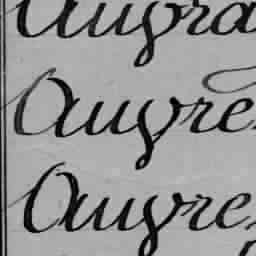 Augra
Augre
Augre